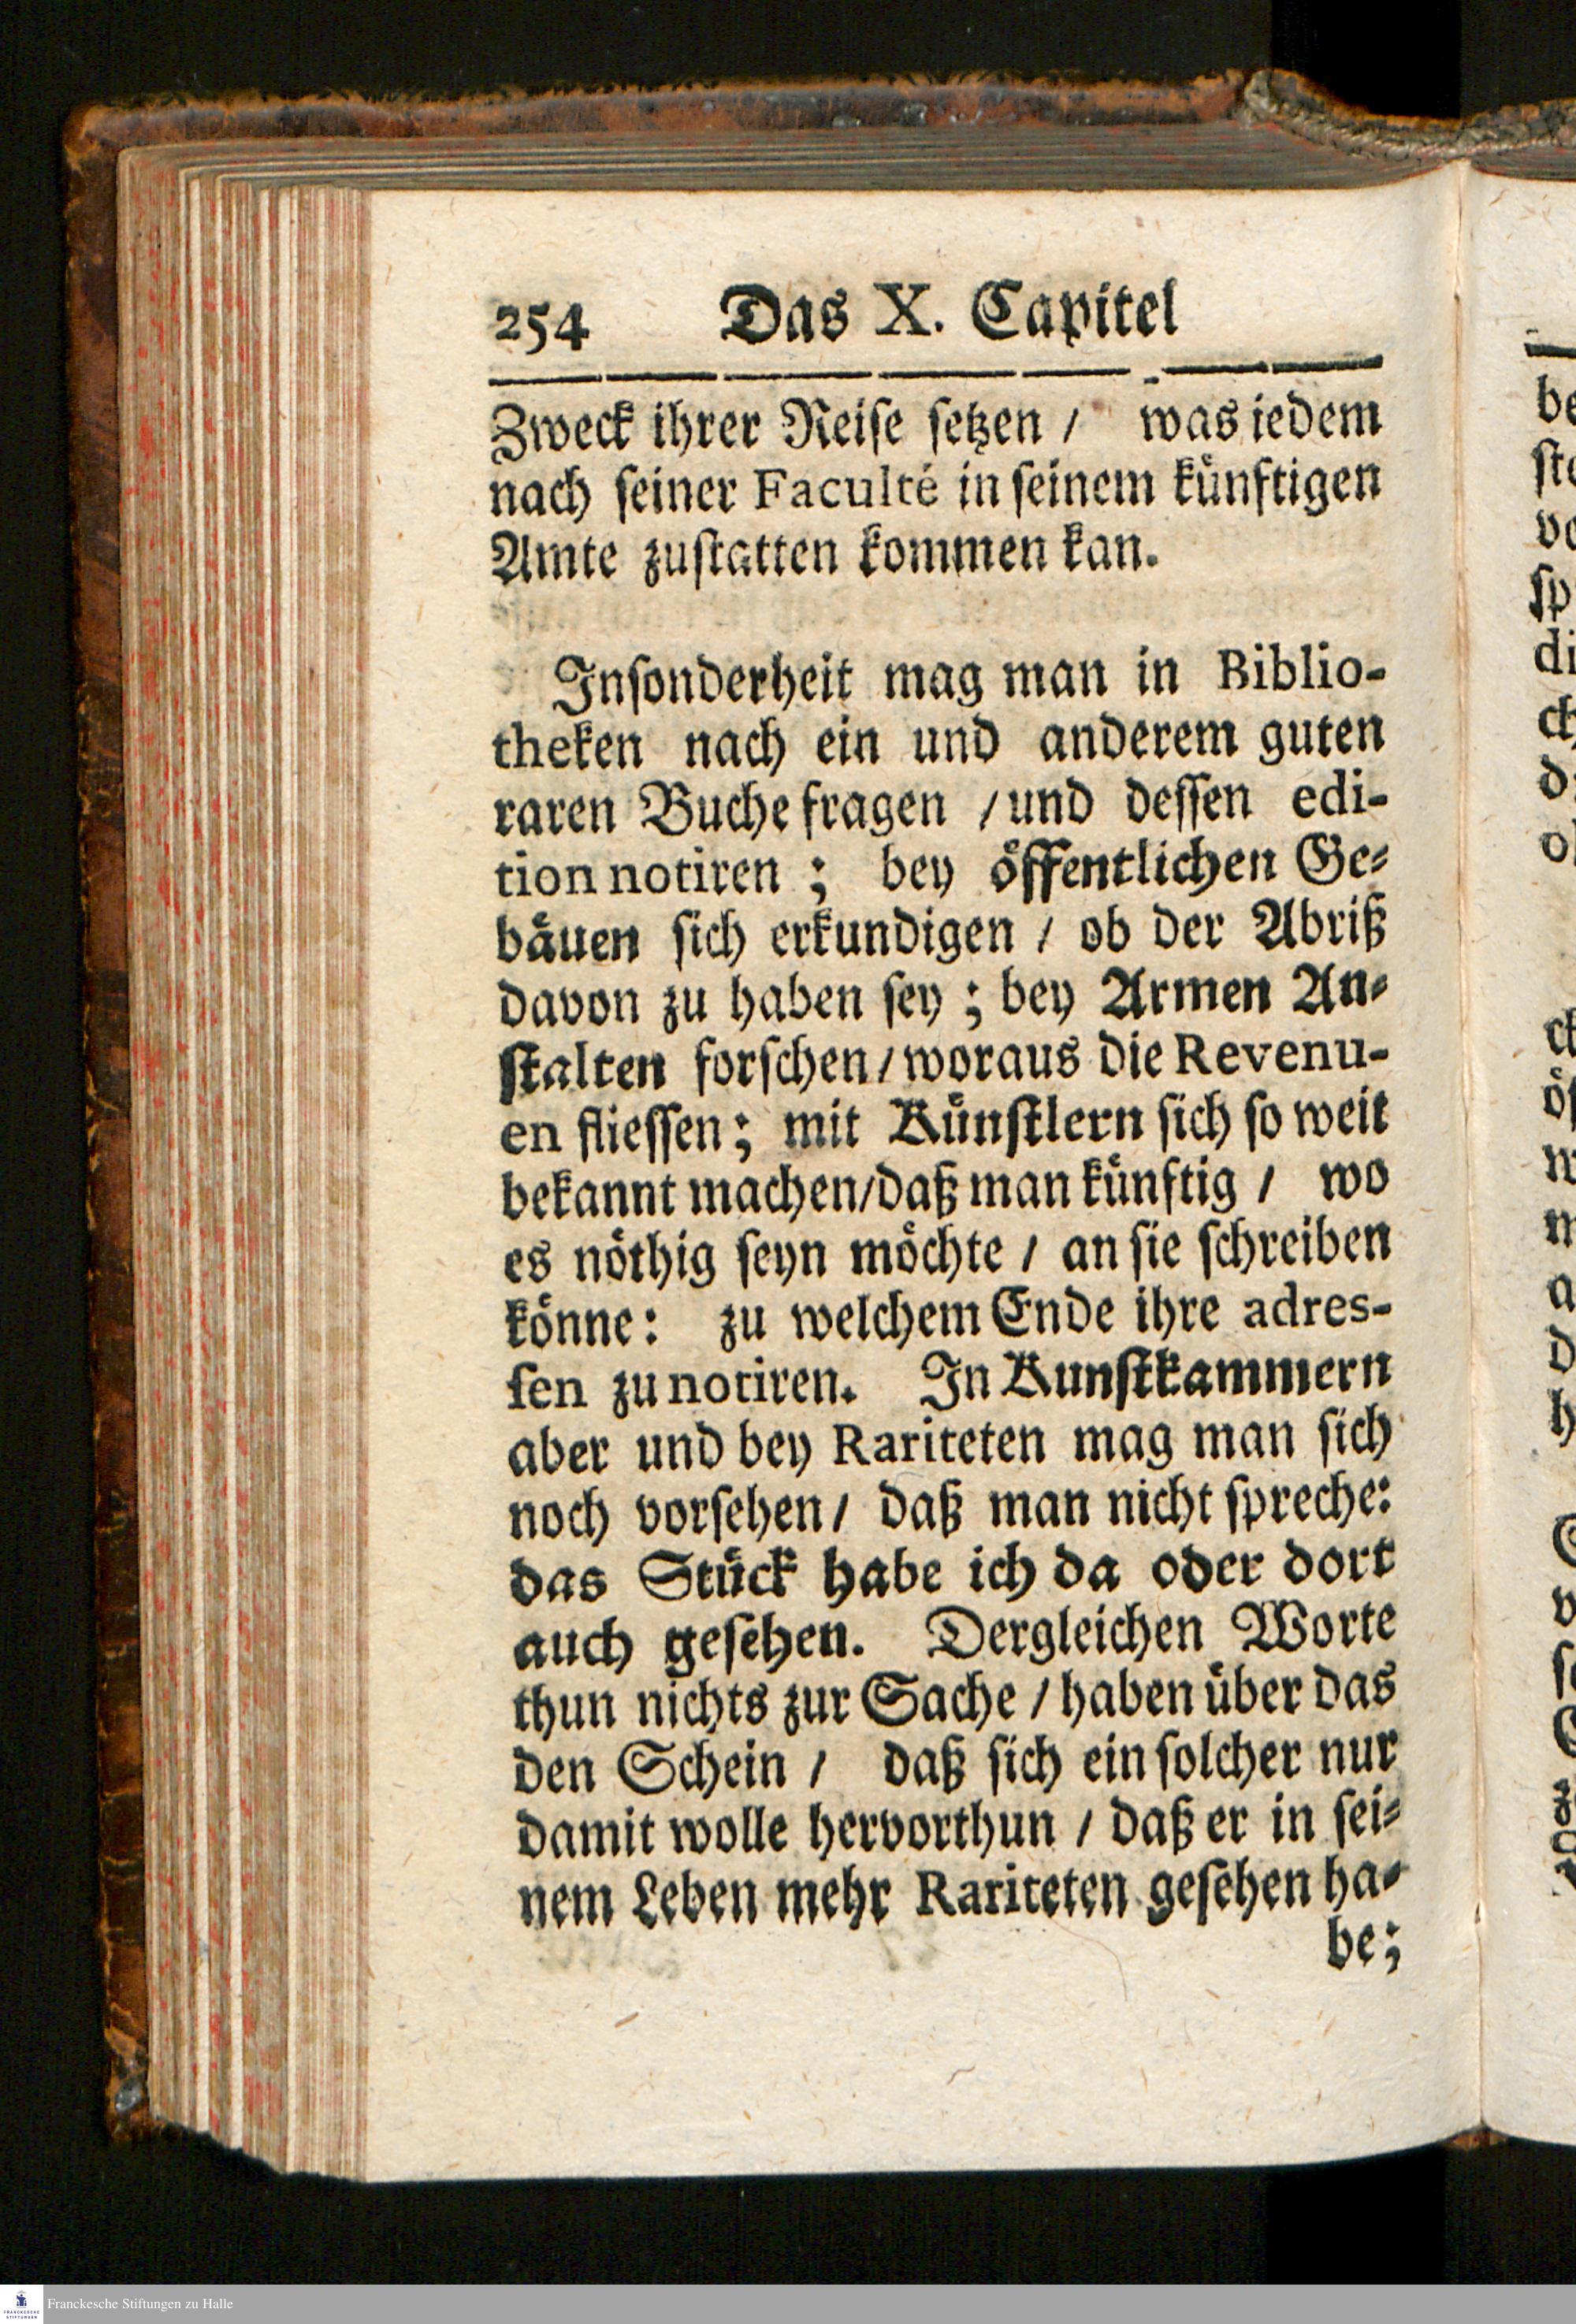 254 Das X. Capitel
Zweck ihrer Reiſe ſetzen / was iedem
nach ſeiner Faculté in ſeinem kuͤnftigen
Amte zuſtatten kommen kan.
Inſonderheit mag man in Biblio-
theken nach ein und anderem guten
raren Buche fragen / und deſſen edi-
tion notiren ; bey oͤffentlichen Ge-
baͤuen ſich erkundigen / ob der Abriß
davon zu haben ſey ; bey Armen An-
ſtalten forſchen / woraus die Revenu-
en flieſſen ; mit Kuͤnſtlern ſich ſo weit
bekannt machen / daß man kuͤnftig / wo
es noͤthig ſeyn moͤchte / an ſie ſchreiben
koͤnne: zu welchem Ende ihre adres-
ſen zu notiren. In Kunſtkammern
aber und bey Rariteten mag man ſich
noch vorſehen / daß man nicht ſpreche:
das Stuͤck habe ich da oder dort
auch geſehen. Dergleichen Worte
thun nichts zur Sache / haben uͤber das
den Schein / daß ſich ein ſolcher nur
damit wolle hervorthun / daß er in ſei-
nem Leben mehr Rariteten geſehen ha-
be;
be
ſte
vo
ſp
di
ch
ck
w
m
a
d
h
v
Franckesche Stiftungen zu Halle
FRANCKESCHE
STIFTUNGEN